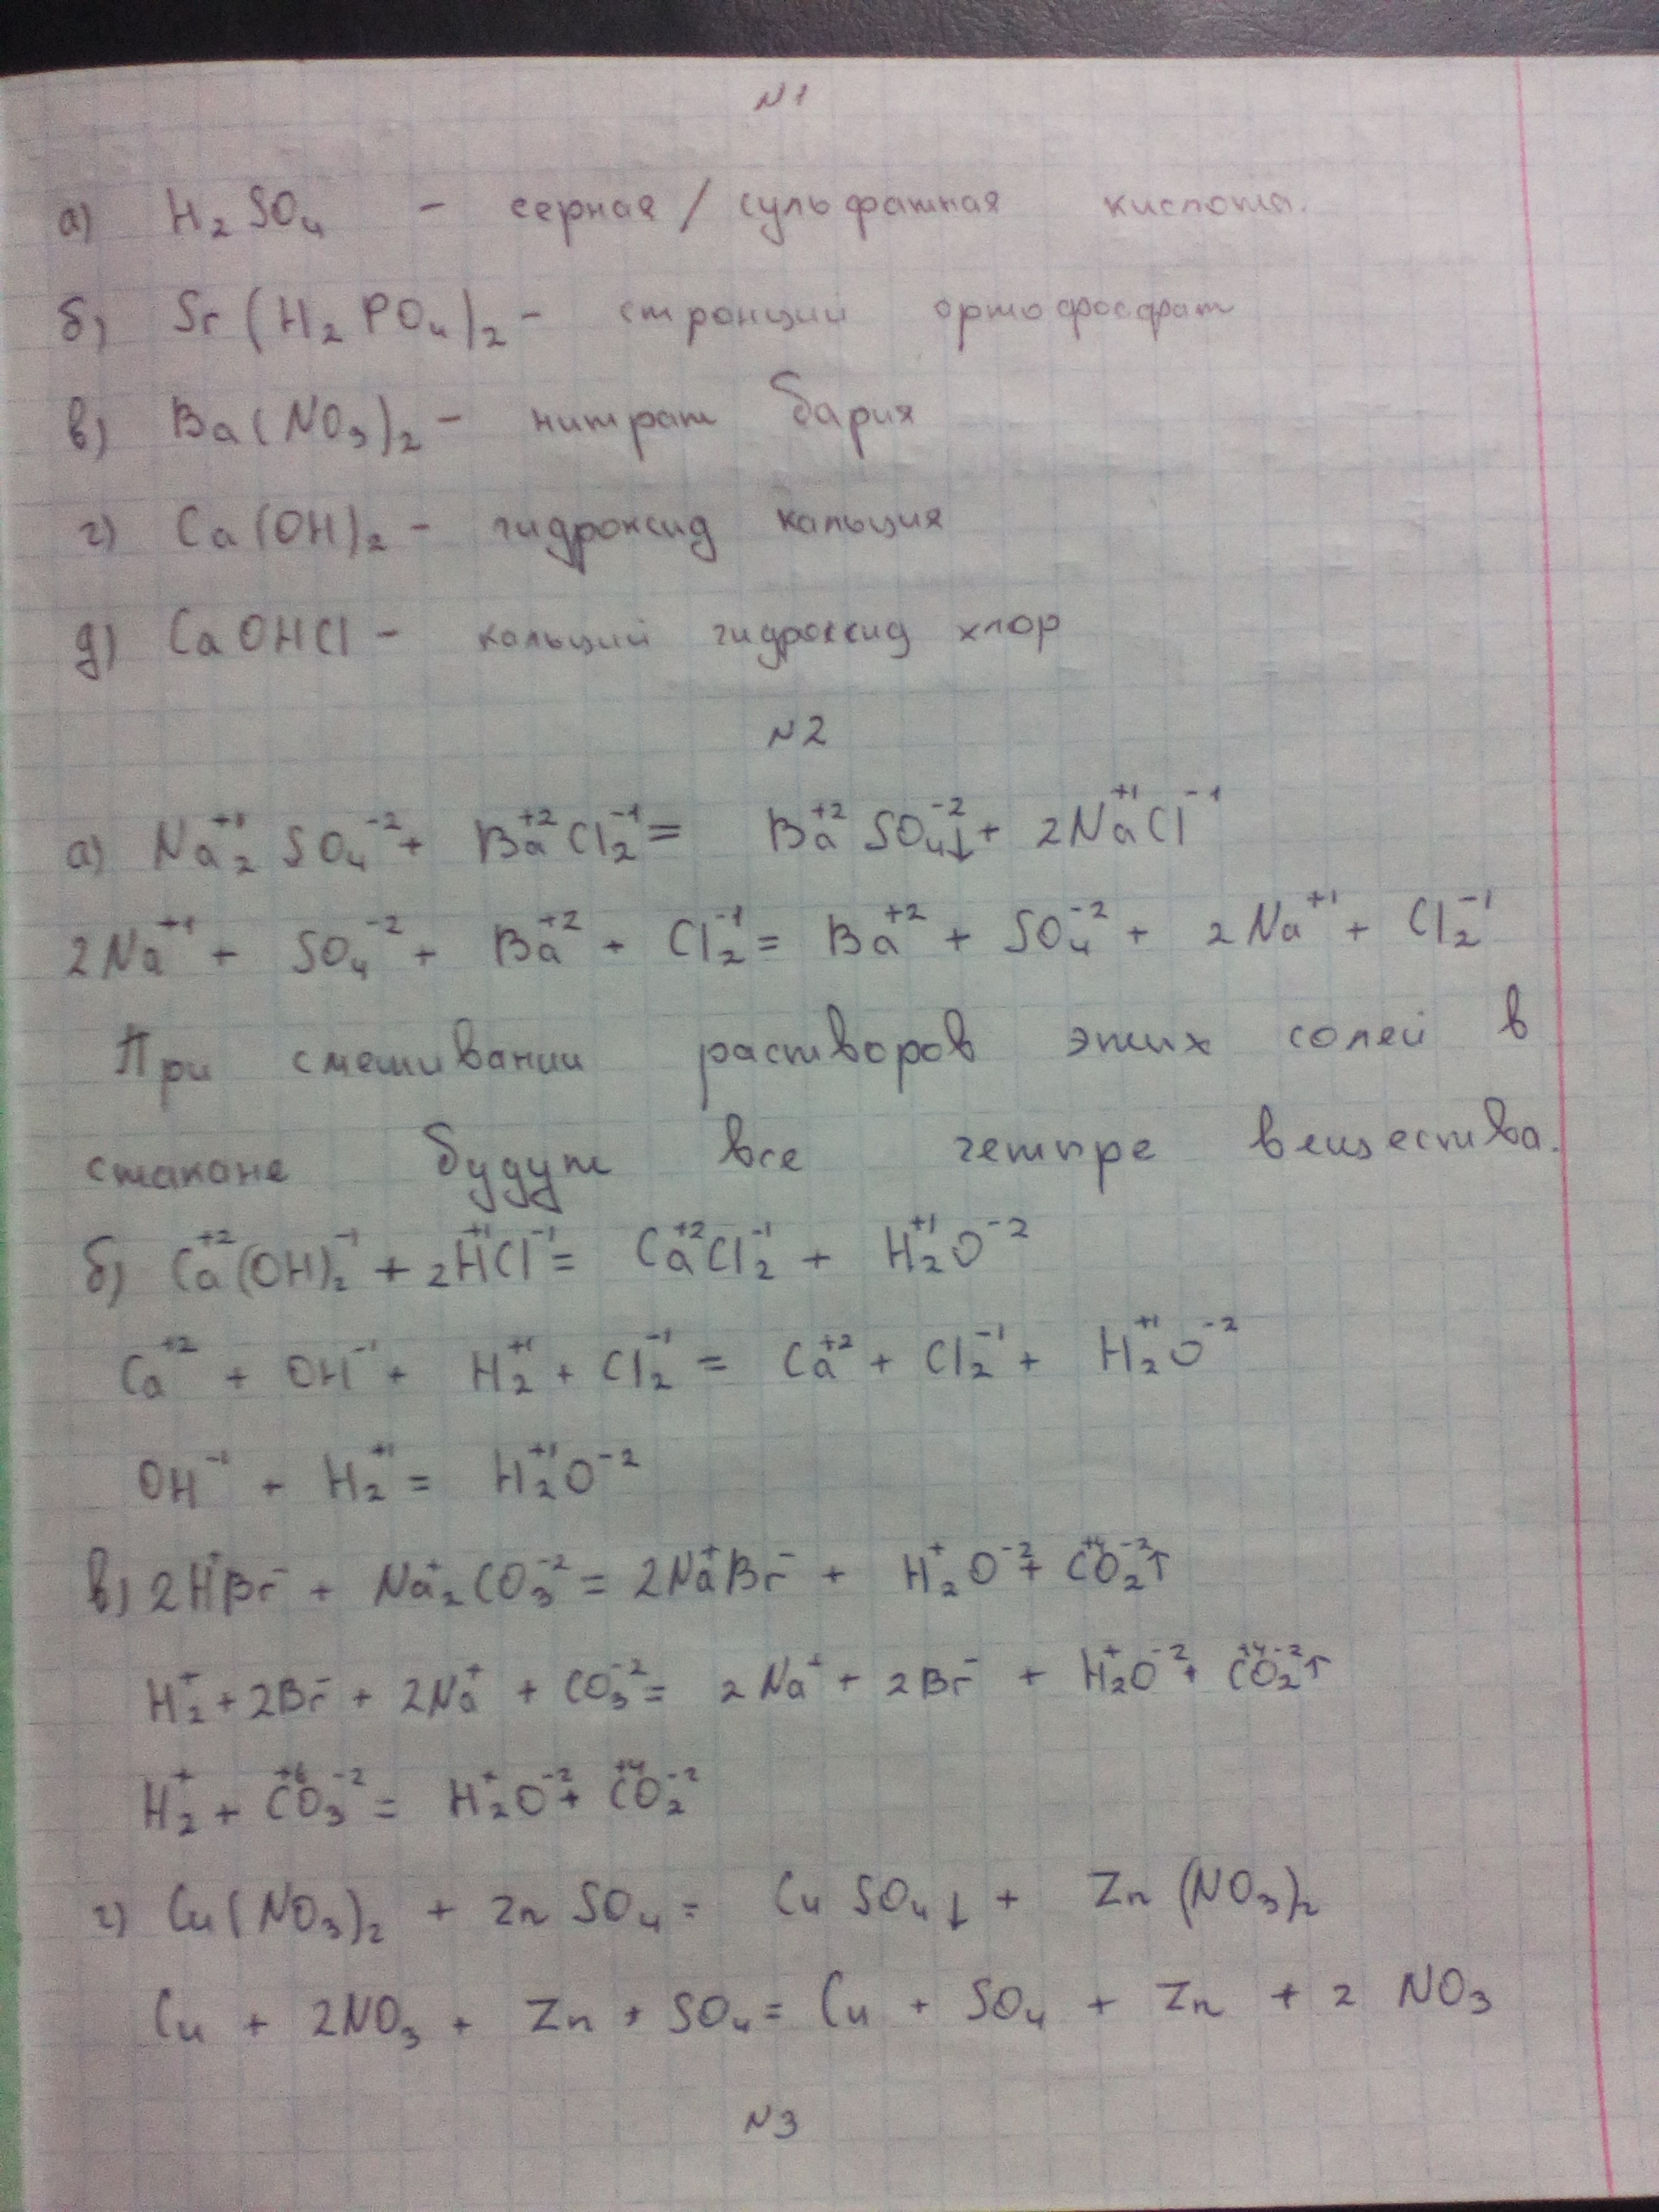 N1
а) H₂SO₄ - серная / сульфатная кислота.
б) Sr(H₂PO₄)₂ - стронции ортофосфат
в) Ba(NO₃)₂ - нитрат бария
г) Ca(OH)₂ - гидроксид кальция
д) CaOHCl - кальций гидроксид хлор
N2
а) Na₂⁺¹SO₄⁻² + Ba⁺²Cl₂⁻¹ = Ba⁺²SO₄⁻²↓ + 2Na⁺¹Cl⁻¹
2Na⁺¹ + SO₄⁻² + Ba⁺² + Cl₂⁻¹ = Ba⁺² + SO₄⁻² + 2Na⁺¹ + Cl₂⁻¹
При смешивании растворов этих солей в
стакане будут все четыре вещества.
б) Ca⁺²(OH)₂⁻¹ + 2H⁺¹Cl⁻¹ = Ca⁺²Cl₂⁻¹ + H₂⁺¹O⁻²
Ca⁺² + OH⁻¹ + H₂⁺¹ + Cl₂⁻¹ = Ca⁺² + Cl₂⁻¹ + H₂⁺¹O⁻²
OH⁻¹ + H₂⁺¹ = H₂⁺¹O⁻²
в) 2H⁺Br⁻ + Na₂⁺CO₃⁻² = 2Na⁺Br⁻ + H₂⁺O⁻² + C⁺⁴O₂⁻²↑
H₂⁺ + 2Br⁻ + 2Na⁺ + CO₃⁻² = 2Na⁺ + 2Br⁻ + H₂⁺O⁻² + C⁺⁴O₂⁻²↑
H₂⁺ + C⁺⁶O₃⁻² = H₂⁺O⁻² + C⁺⁴O₂⁻²
г) Cu(NO₃)₂ + ZnSO₄ = CuSO₄↓ + Zn(NO₃)₂
Cu + 2NO₃ + Zn + SO₄ = Cu + SO₄ + Zn + 2NO₃
N3